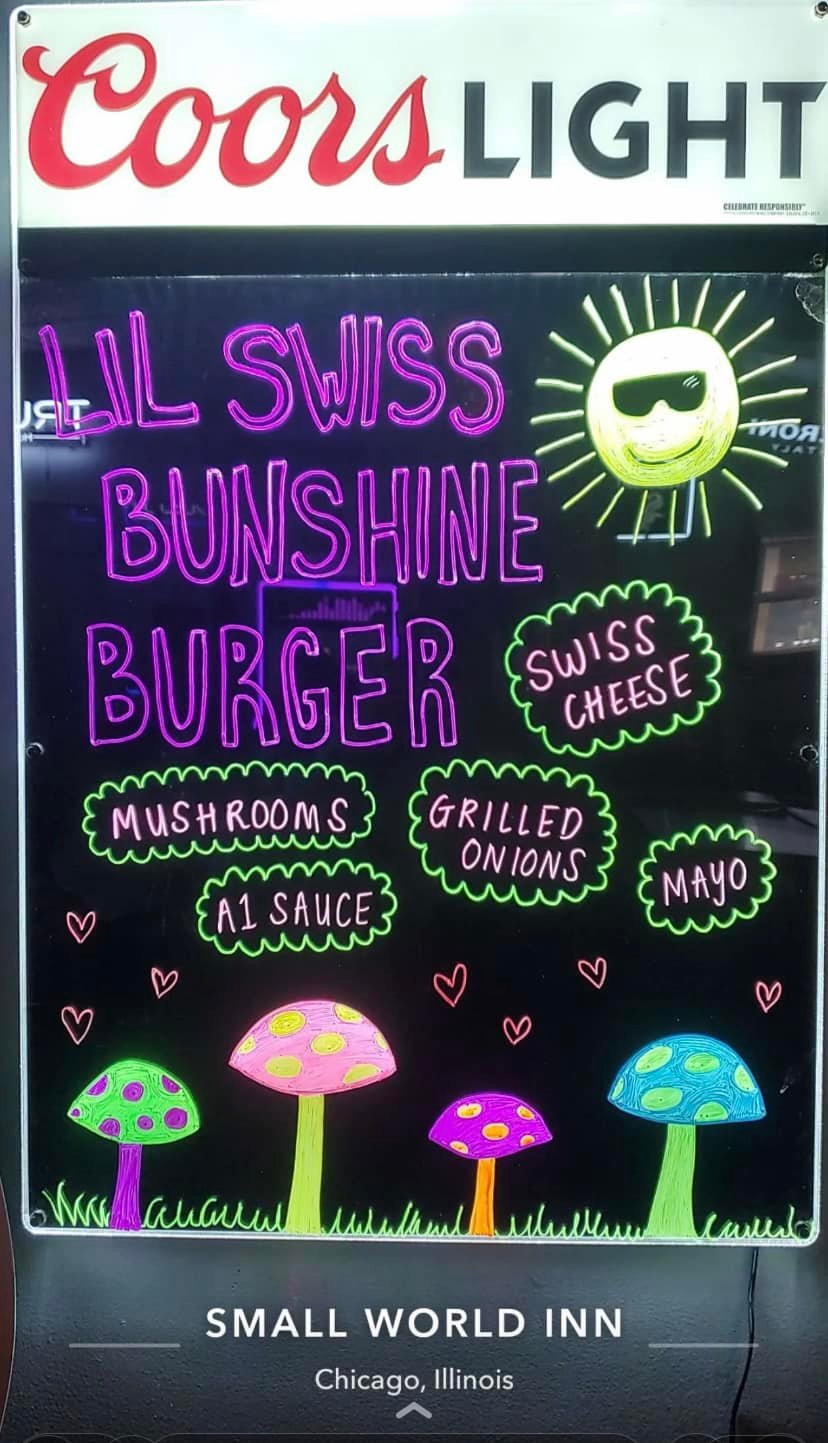 Coors LIGHT
CELEBRATE RESPONSIBLY
LIL SWISS
BUNSHINE
BURGER
SWISS
CHEESE
MUSHROOMS
GRILLED
ONIONS
A1 SAUCE
MAYO
SMALL WORLD INN
Chicago, Illinois